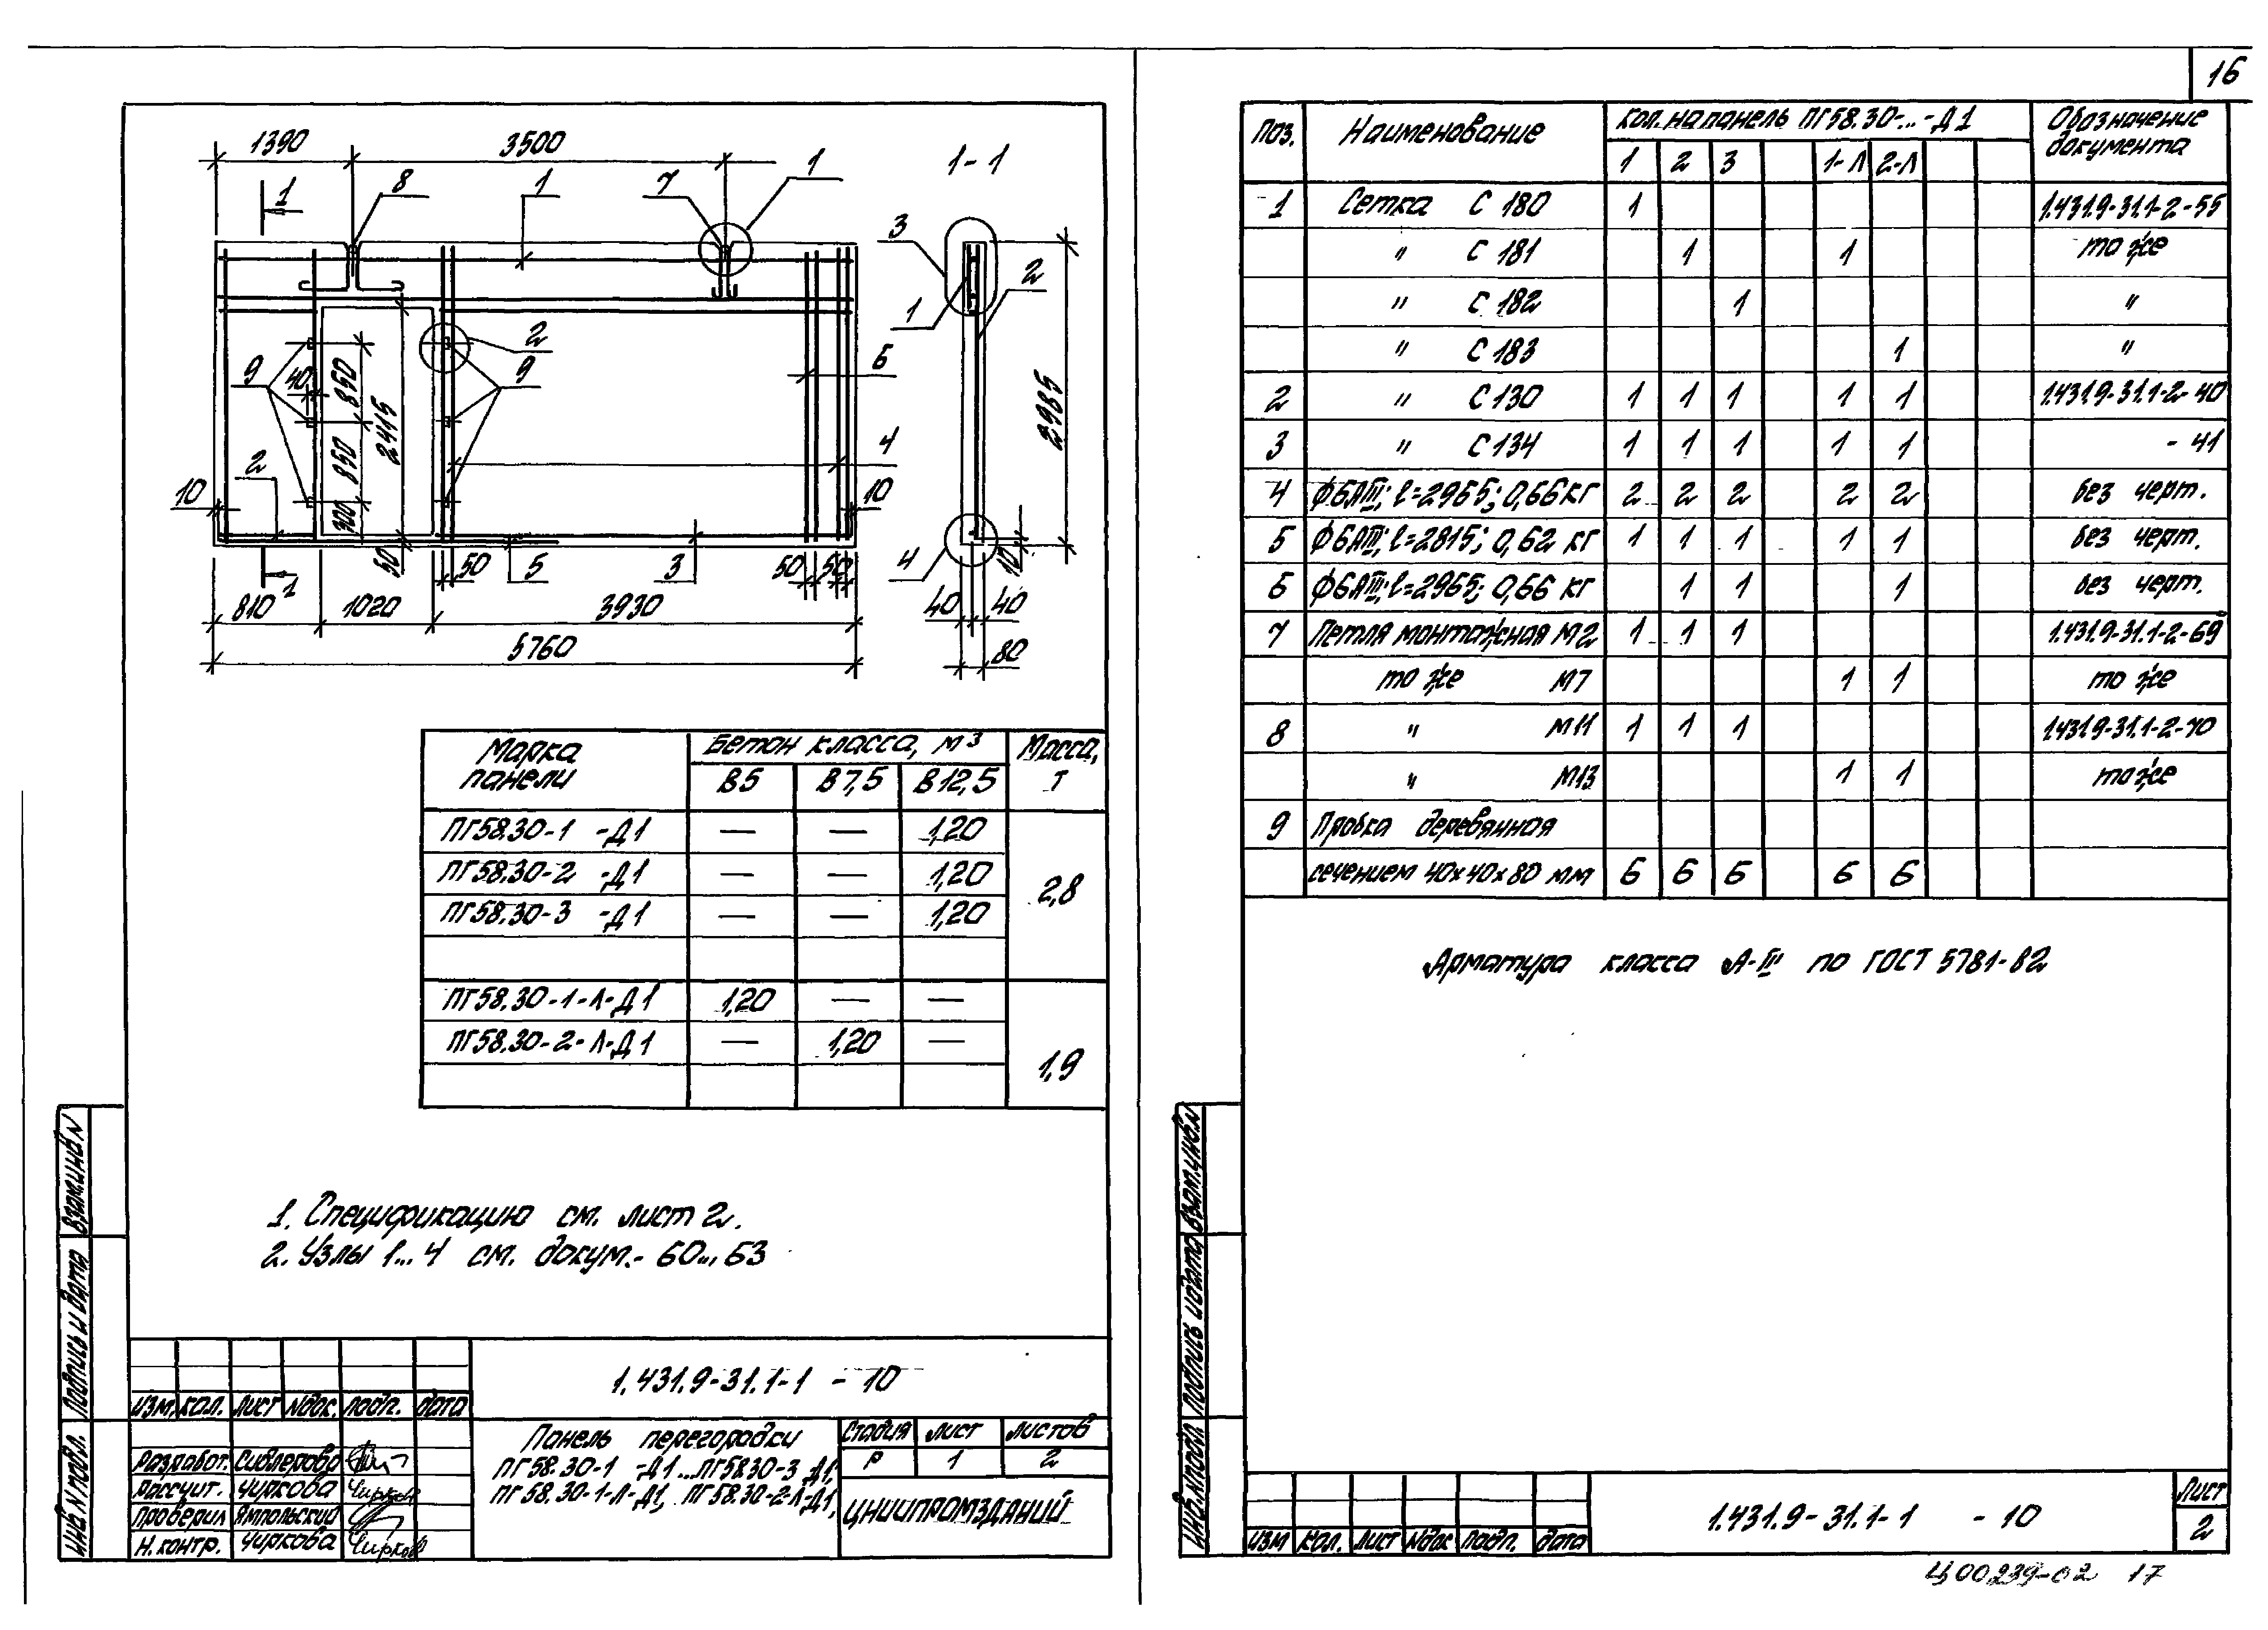 16
1390
3500
1
8
1
7
1
1-1
3
1
2
2
9
40
850
850
300
2415
50
9
6
4
2
10
10
2985
4
10
50
5
3
50
50
1
810
1020
3930
40
40
5760
80
Марка панели
Бетон класса, м³
Масса, т
В5
В7,5
В12,5
ПГ58.30-1 -Д1 — — 1,20
ПГ58.30-2 -Д1 — — 1,20
2,8
ПГ58.30-3 -Д1 — — 1,20
ПГ58.30-1-Л-Д1 1,20 — —
ПГ58.30-2-Л-Д1 — 1,20 —
1,9
1. Спецификацию см. лист 2.
2. Узлы 1...4 см. докум.- 60...63
Взам.инв.N
Подпись и дата
Инв.N подл.
1.431.9-31.1-1 - 10
Изм. Кол. Лист Nдок. Подп. Дата
Панель перегородки
ПГ58.30-1 -Д1...ПГ58.30-3 Д1,
ПГ58.30-1-Л-Д1, ПГ58.30-2-Л-Д1,
Стадия Лист Листов
Р 1 2
ЦНИИПРОМЗДАНИЙ
Разработ.
Рассчит. Чиркова
Проверил Ямпольский
Н.контр. Чиркова
Поз. Наименование Кол. на панель ПГ58.30-...-Д1 Обозначение документа
1 2 3 1-Л 2-Л
1 Сетка С 180 1 1.431.9-31.1-2-55
" С 181 1 1 то же
" С 182 1 "
" С 183 1 "
2 " С 130 1 1 1 1 1 1.431.9-31.1-2-40
3 " С 134 1 1 1 1 1 - 41
4 Ф6АIII; l=2965; 0,66 кг 2 2 2 2 2 без черт.
5 Ф6АIII; l=2815; 0,62 кг 1 1 1 1 1 без черт.
6 Ф6АIII; l=2965; 0,66 кг 1 1 1 без черт.
7 Петля монтажная М2 1 1 1 1.431.9-31.1-2-69
то же М7 1 1 то же
8 " М11 1 1 1 1.431.9-31.1-2-70
" М13 1 1 то же
9 Пробка деревянная
сечением 40х40х80 мм 6 6 6 6 6
Арматура класса А-III по ГОСТ 5781-82
Взам.инв.N
Подпись и дата
Инв.N подл.
Изм Кол. Лист Nдок Подп. Дата
1.431.9-31.1-1 - 10
Лист
2
Ц00239-02 17